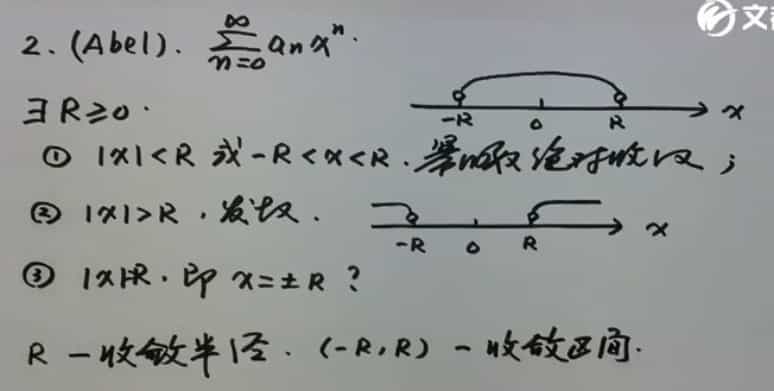 文都
2. (Abel). \sum_{n=0}^{\infty} a_n x^n.
∃ R ≥ 0.
-R 0 R x
① |x|<R 或 -R<x<R. 幂级数绝对收敛;
② |x|>R, 发散.
-R 0 R x
③ |x|=R. 即 x=±R ?
R - 收敛半径. (-R, R) - 收敛区间.